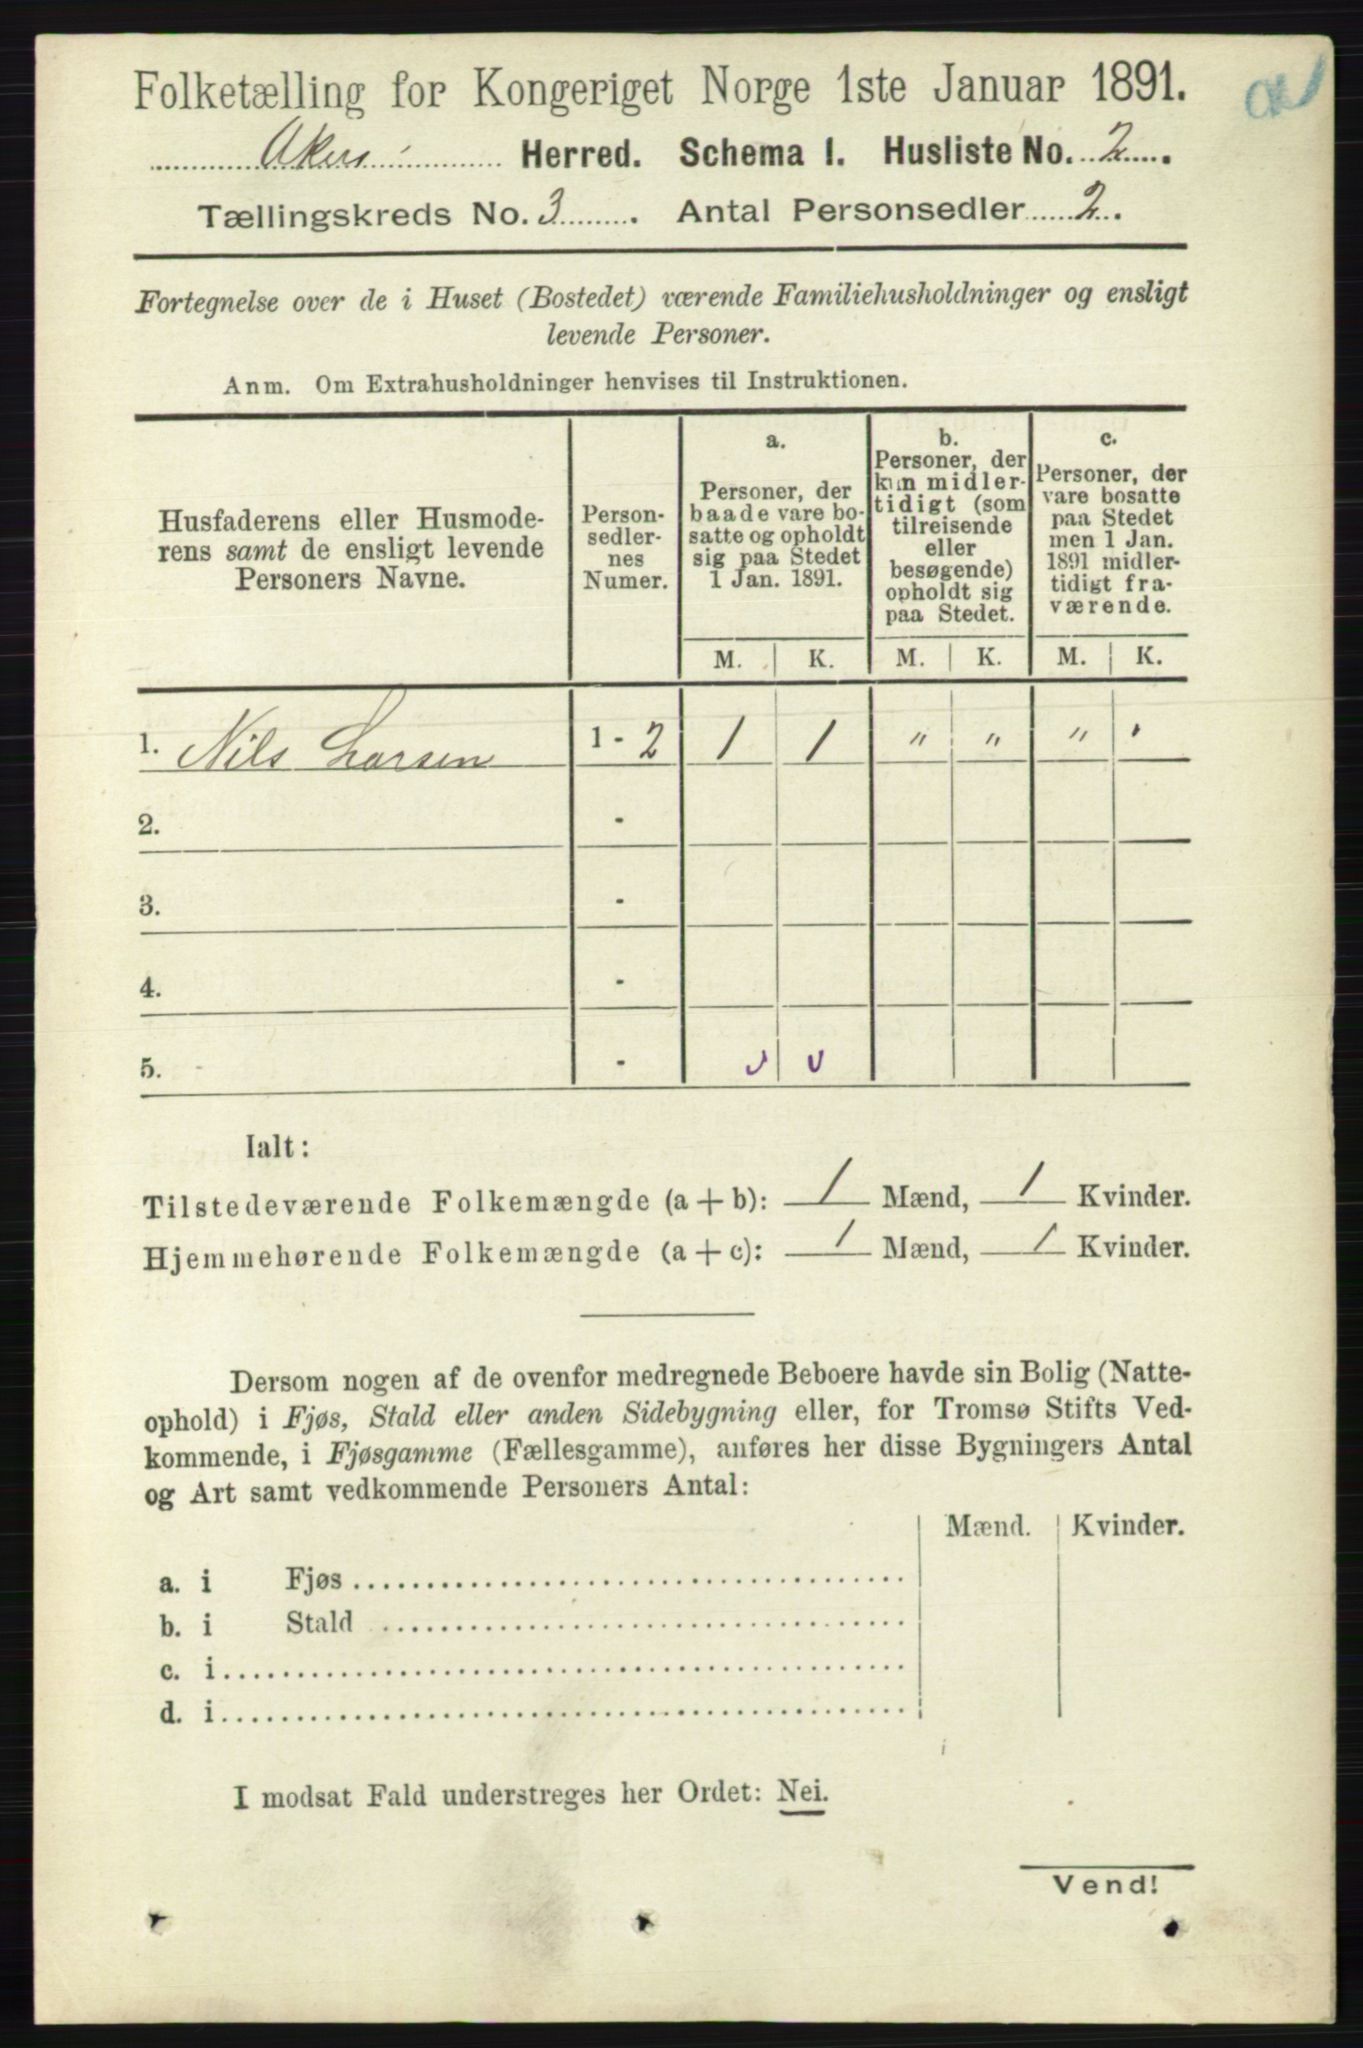 Folketælling for Kongeriget Norge 1ste Januar 1891.
Akers Herred. Schema I. Husliste No. 2.
Tællingskreds No. 3. Antal Personsedler 2.
Fortegnelse over de i Huset (Bostedet) værende Familiehusholdninger og ensligt
levende Personer.
Anm. Om Extrahusholdninger henvises til Instruktionen.
Husfaderens eller Husmode-
rens samt de ensligt levende
Personers Navne.
Person-
sedler-
nes
Numer.
a.
Personer, der
baade vare bo-
satte og opholdt
sig paa Stedet
1 Jan. 1891.
b.
Personer, der
kun midler-
tidigt (som
tilreisende
eller
besøgende)
opholdt sig
paa Stedet.
c.
Personer, der
vare bosatte
paa Stedet
men 1 Jan.
1891 midler-
tidigt fra-
værende.
M. K. M. K. M. K.
1. Nils Larsen 1 - 2 1 1 " " " '
2. -
3. -
4. -
5. -
Ialt:
Tilstedeværende Folkemængde (a + b): 1 Mænd, 1 Kvinder.
Hjemmehørende Folkemængde (a + c): 1 Mænd, 1 Kvinder.
Dersom nogen af de ovenfor medregnede Beboere havde sin Bolig (Natte-
ophold) i Fjøs, Stald eller anden Sidebygning eller, for Tromsø Stifts Ved-
kommende, i Fjøsgamme (Fællesgamme), anføres her disse Bygningers Antal
og Art samt vedkommende Personers Antal:
Mænd. Kvinder.
a. i Fjøs
b. i Stald
c. i
d. i
I modsat Fald understreges her Ordet: Nei.
Vend!